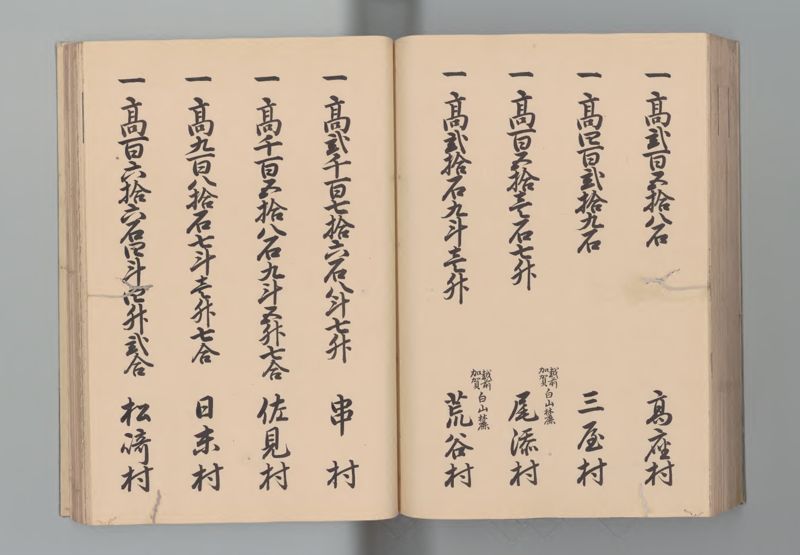 一高弐百五拾八石 高座村
一高四百弐拾九石 三屋村
一高百五拾壱石七升 越前加賀白山麓 尾添村
一高弐拾石九斗壱升 越前加賀白山麓 荒谷村
一高弐千百七拾六石八斗七升 串村
一高千百五拾八石九斗五升七合 佐見村
一高九百八拾石七斗壱升七合 日末村
一高百六拾六石四斗四升弐合 松崎村